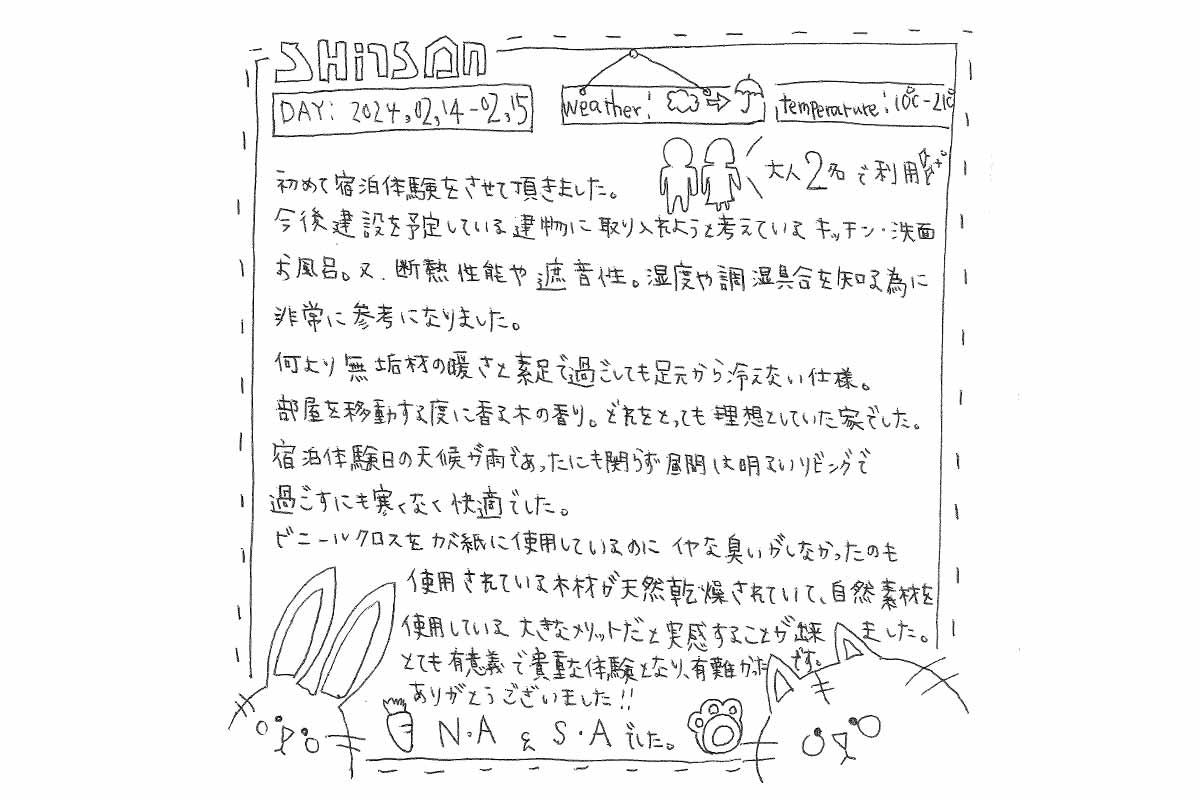 SHinSAn
DAY: 2024.02.14-02.15
weather:
temperarure: 10℃-21℃
大人2名で利用
初めて宿泊体験をさせて頂きました。
今後建設を予定している建物に取り入れようと考えているキッチン・洗面
お風呂。又、断熱性能や遮音性。湿度や調湿具合を知る為に
非常に参考になりました。
何より無垢材の暖さと素足で過ごしても足元から冷えない仕様。
部屋を移動する度に香る木の香り。どれをとっても理想としていた家でした。
宿泊体験日の天候が雨であったにも関らず昼間は明るいリビングで
過ごすにも寒くなく快適でした。
ビニールクロスをが紙に使用しているのにイヤな臭いがしなかったのも
使用されている木材が天然乾燥されていて、自然素材を
使用している大きなメリットだと実感することが出来ました。
とても有意義で貴重な体験となり、有難かったです。
ありがとうございました!!
N・A & S・Aでした。